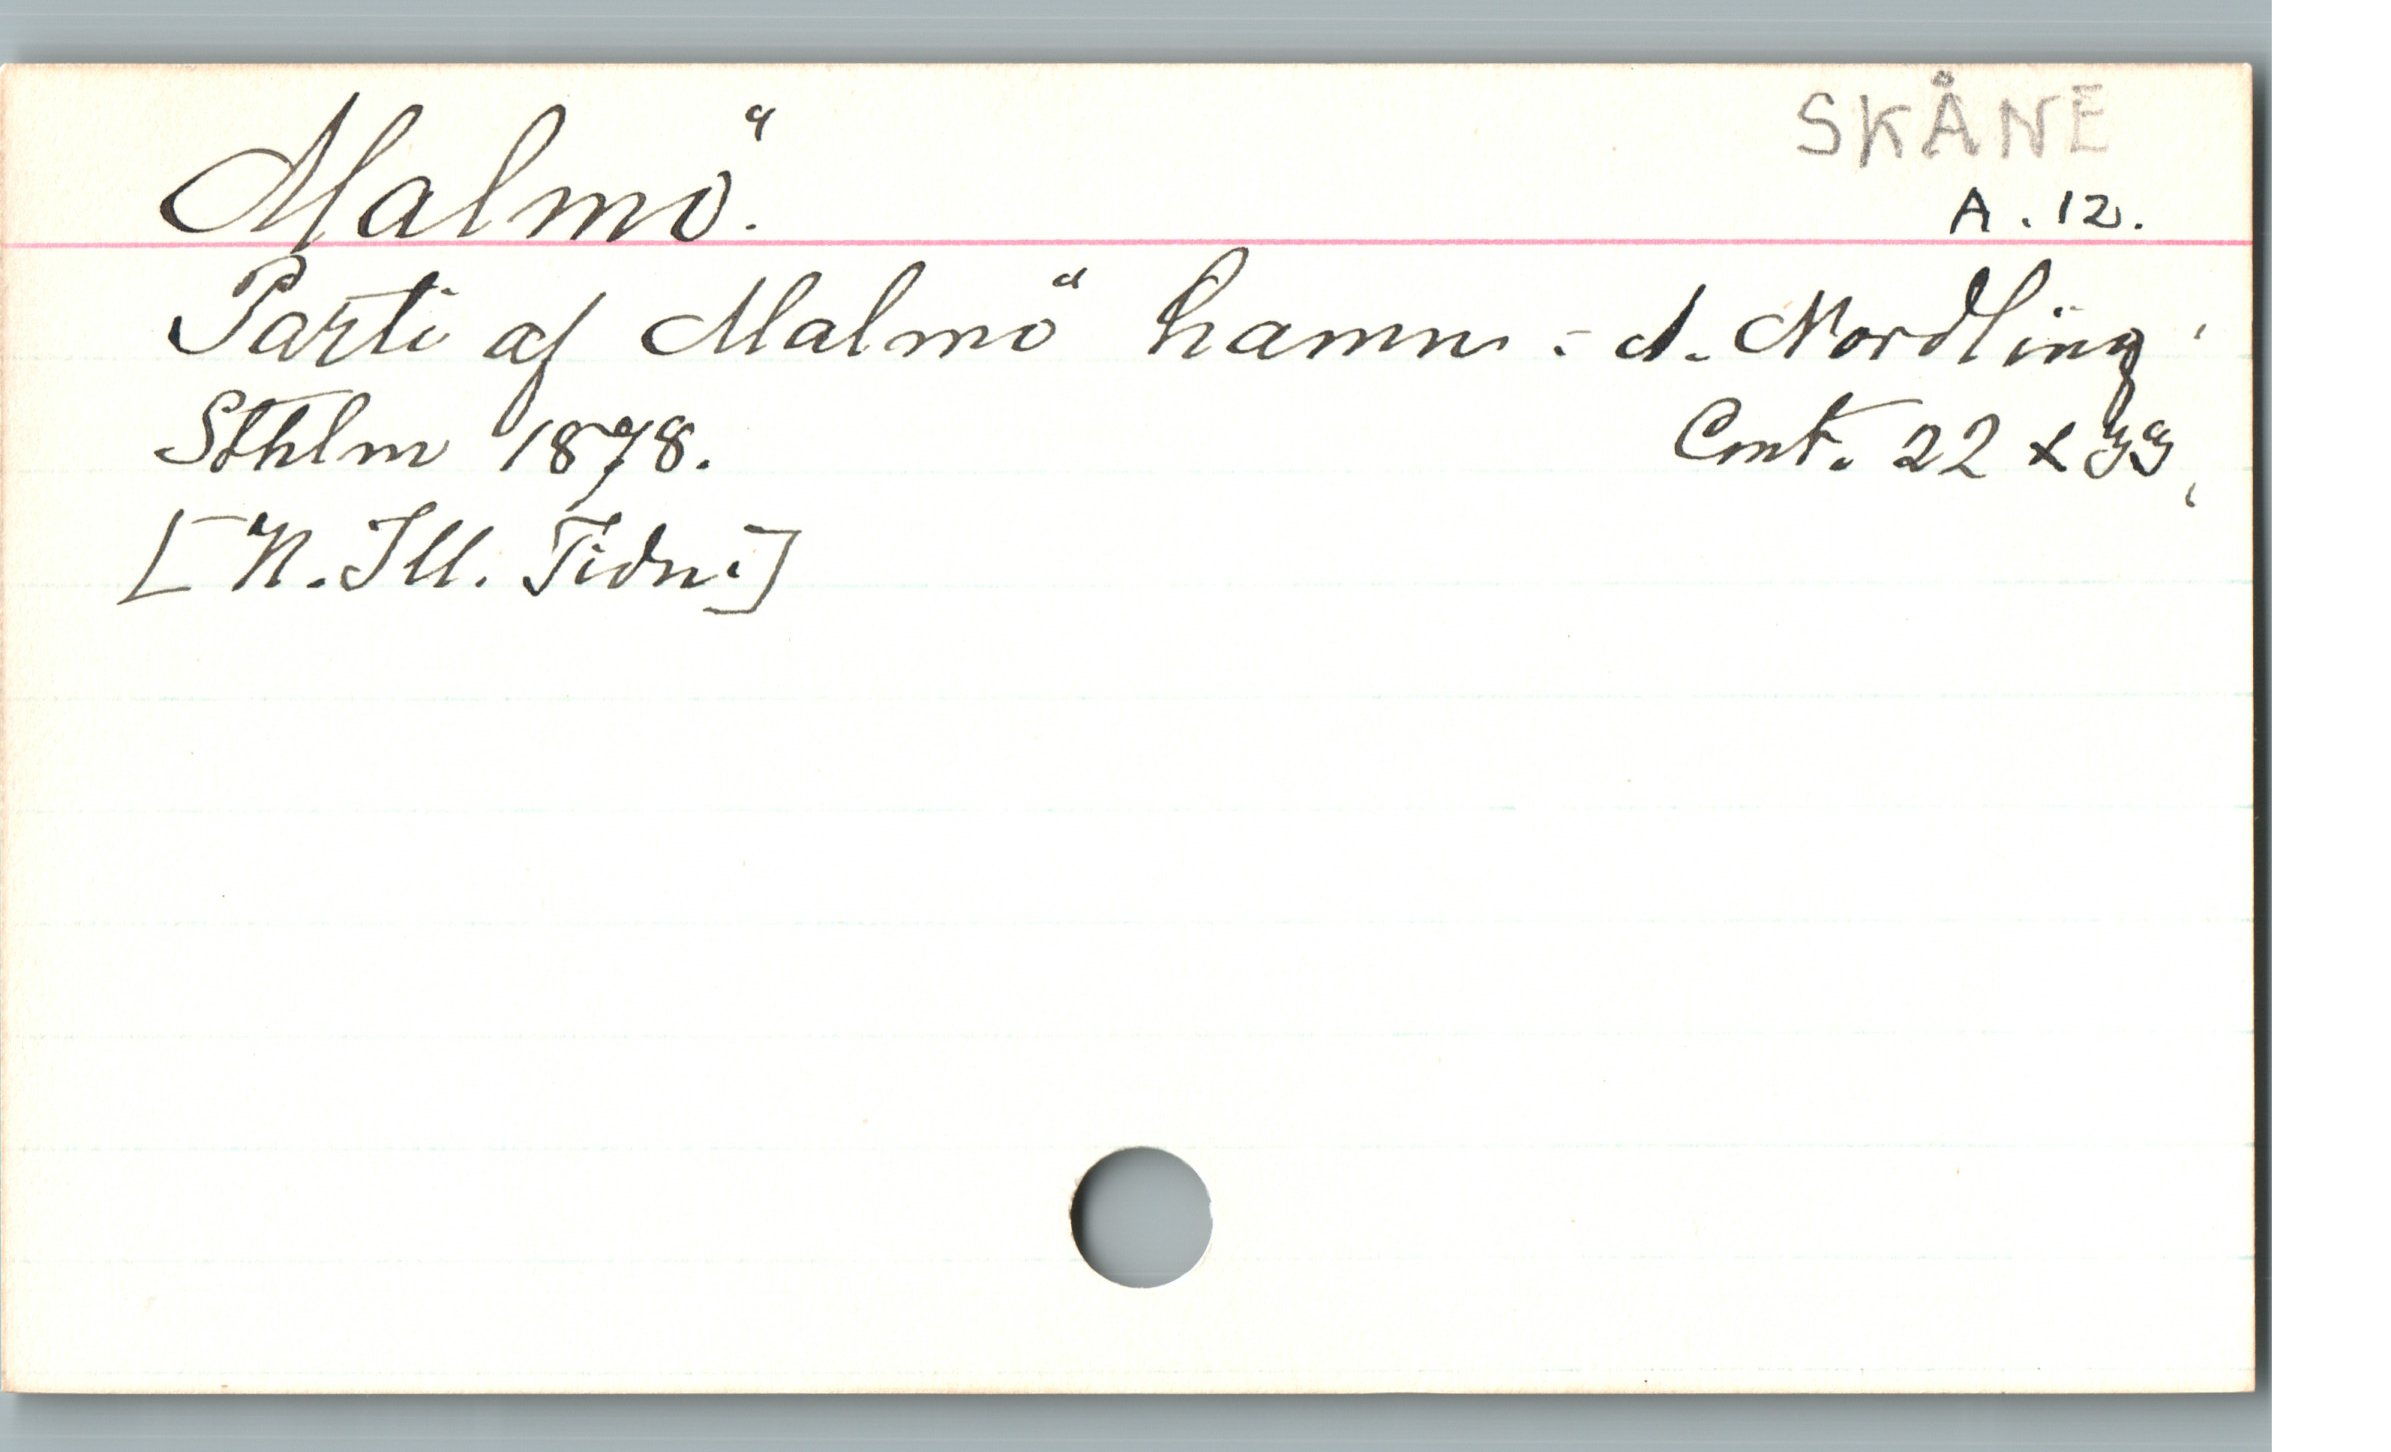 SKÅNE
Malmö. A. 12.
Parti af Malmö hamn. - A. Nordling
Sthlm 1878. Cmt. 22 x 33
[N. Ill. Tidn.]